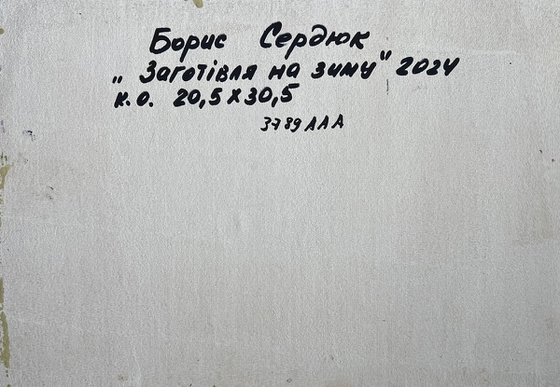 Борис Сердюк
„Заготівля на зиму" 2024
к.о. 20,5 x 30,5
3789 ААА